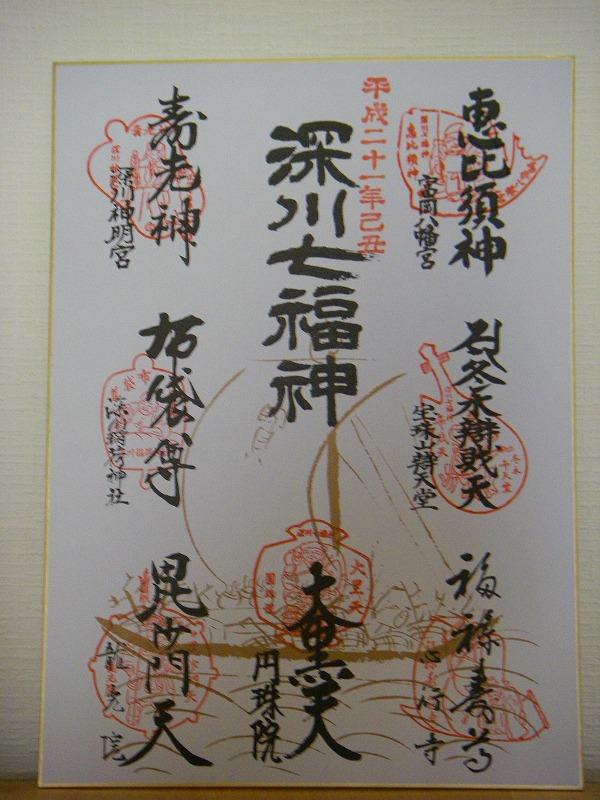 平成二十一年己丑
深川七福神
恵比須神
富岡八幡宮
冬木辯財天
宝珠山辯天堂
福禄寿尊
心行寺
大黒天
円珠院
寿老神
深川神明宮
布袋尊
深川稲荷神社
毘沙門天
龍光院